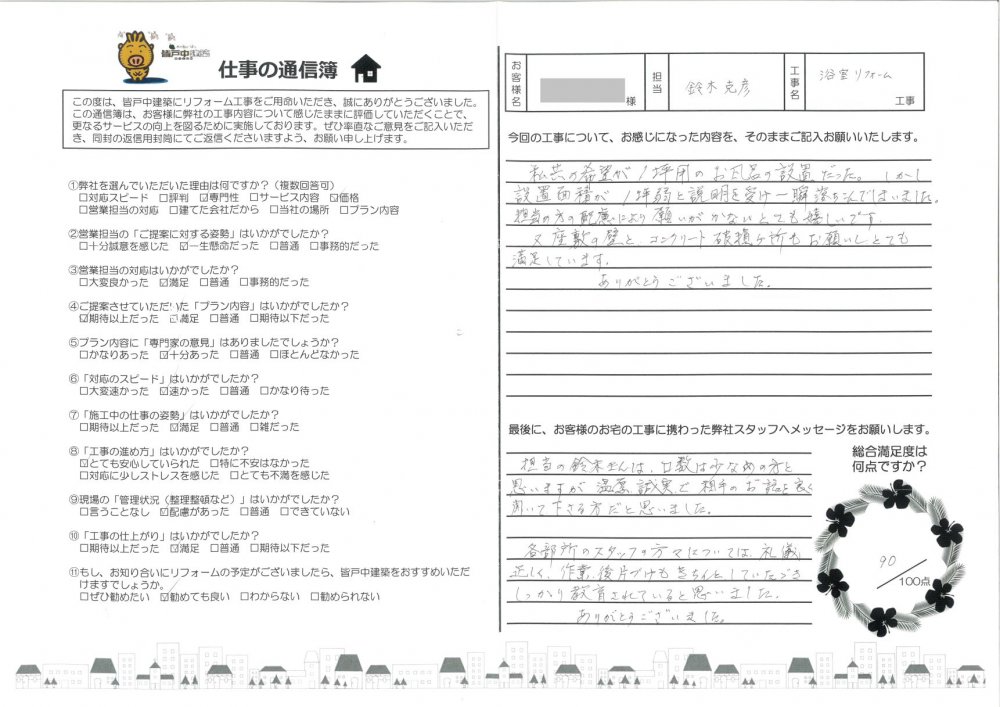 皆戸中建築
仕事の通信簿
この度は、皆戸中建築にリフォーム工事をご用命いただき、誠にありがとうございました。
この通信簿は、お客様に弊社の工事内容について感じたままに評価していただくことで、
更なるサービスの向上を図るために実施しております。ぜひ率直なご意見をご記入いただ
き、同封の返信用封筒にてご返信くださいますよう、お願い申し上げます。
①弊社を選んでいただいた理由は何ですか？（複数回答可）
□対応スピード □評判 ☑専門性 □サービス内容 ☑価格
□営業担当の対応 □建てた会社だから □当社の場所 □プラン内容
②営業担当の「ご提案に対する姿勢」はいかがでしたか？
□十分誠意を感じた ☑一生懸命だった □普通 □事務的だった
③営業担当の対応はいかがでしたか？
□大変良かった ☑満足 □普通 □事務的だった
④ご提案させていただいた「プラン内容」はいかがでしたか？
☑期待以上だった ☑満足 □普通 □期待以下だった
⑤プラン内容に「専門家の意見」はありましたでしょうか？
□かなりあった ☑十分あった □普通 □ほとんどなかった
⑥「対応のスピード」はいかがでしたか？
□大変速かった ☑速かった □普通 □かなり待った
⑦「施工中の仕事の姿勢」はいかがでしたか？
□期待以上だった ☑満足 □普通 □雑だった
⑧「工事の進め方」はいかがでしたか？
☑とても安心していられた □特に不安はなかった
□対応に少しストレスを感じた □とても不満を感じた
⑨現場の「管理状況（整理整頓など）」はいかがでしたか？
□言うことなし ☑配慮があった □普通 □できていない
⑩「工事の仕上がり」はいかがでしたか？
□期待以上だった ☑満足 □普通 □期待以下だった
⑪もし、お知り合いにリフォームの予定がございましたら、皆戸中建築をおすすめいただ
けますでしょうか。
□ぜひ勧めたい ☑勧めても良い □わからない □勧められない
お客様名 様 担当 鈴木克彦 工事名 浴室リフォーム 工事
今回の工事について、お感じになった内容を、そのままご記入お願いいたします。
私共の希望が1坪用のお風呂の設置だった。しかし
設置面積が1坪弱と説明を受け一瞬落ちこんでしまいました。
担当の方の配慮により願いがかないとても嬉しいです
又座敷の壁と、コンクリート破損ヶ所もお願いしとても
満足しています。
ありがとうございました。
最後に、お客様のお宅の工事に携わった弊社スタッフへメッセージをお願いします。
担当の鈴木さんは、口数は少なめの方と
思いますが温厚、誠実で相手のお話を良く
聞いて下さる方だと思いました。
各部所のスタッフの方々については、礼儀
正しく、作業、後片づけもきちんとしていただき
しっかり教育されていると思いました。
ありがとうございました。
総合満足度は
何点ですか？
90
100点